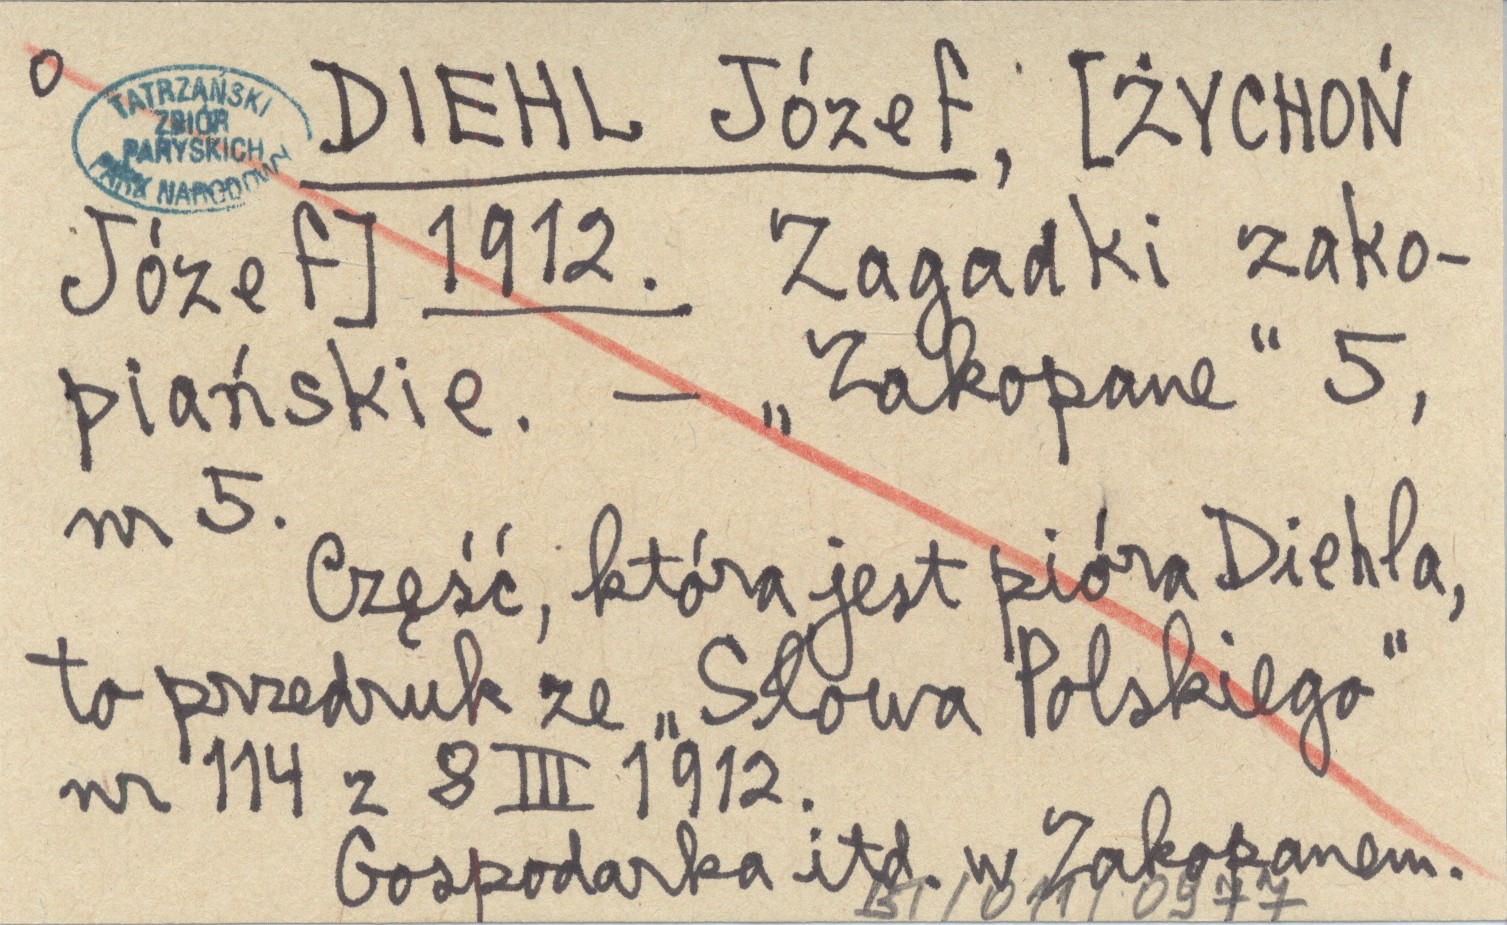 o
TATRZAŃSKI
ZBIÓR
PARYSKICH
PARK NARODOWY
DIEHL Józef, [ŻYCHOŃ
Józef] 1912. Zagadki zako-
piańskie. — „Zakopane" 5,
nr 5.
Część, która jest pióra Diehla,
to przedruk ze „Słowa Polskiego"
nr 114 z 8 III 1912.
Gospodarka itd. w Zakopanem.
BT/011/0977